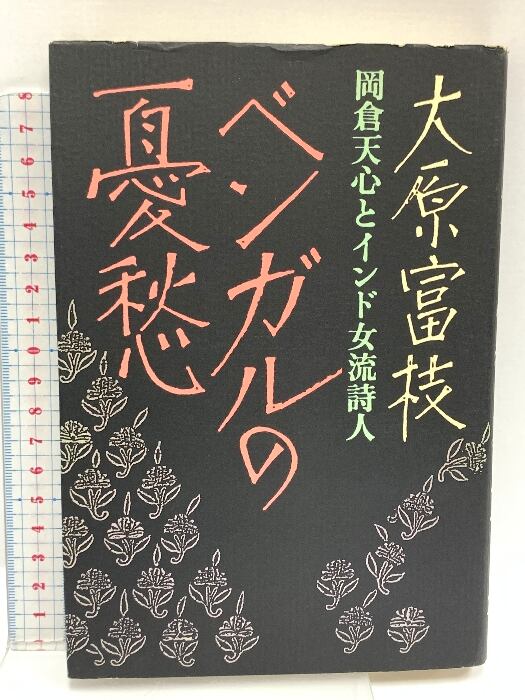 大原富枝
岡倉天心とインド女流詩人
ベンガルの
憂愁
8
7
6
5
4
3
2
1
0
9
8
7
6
5
4
3
2
1
0
9
8
7
6
5
4
3
2
1